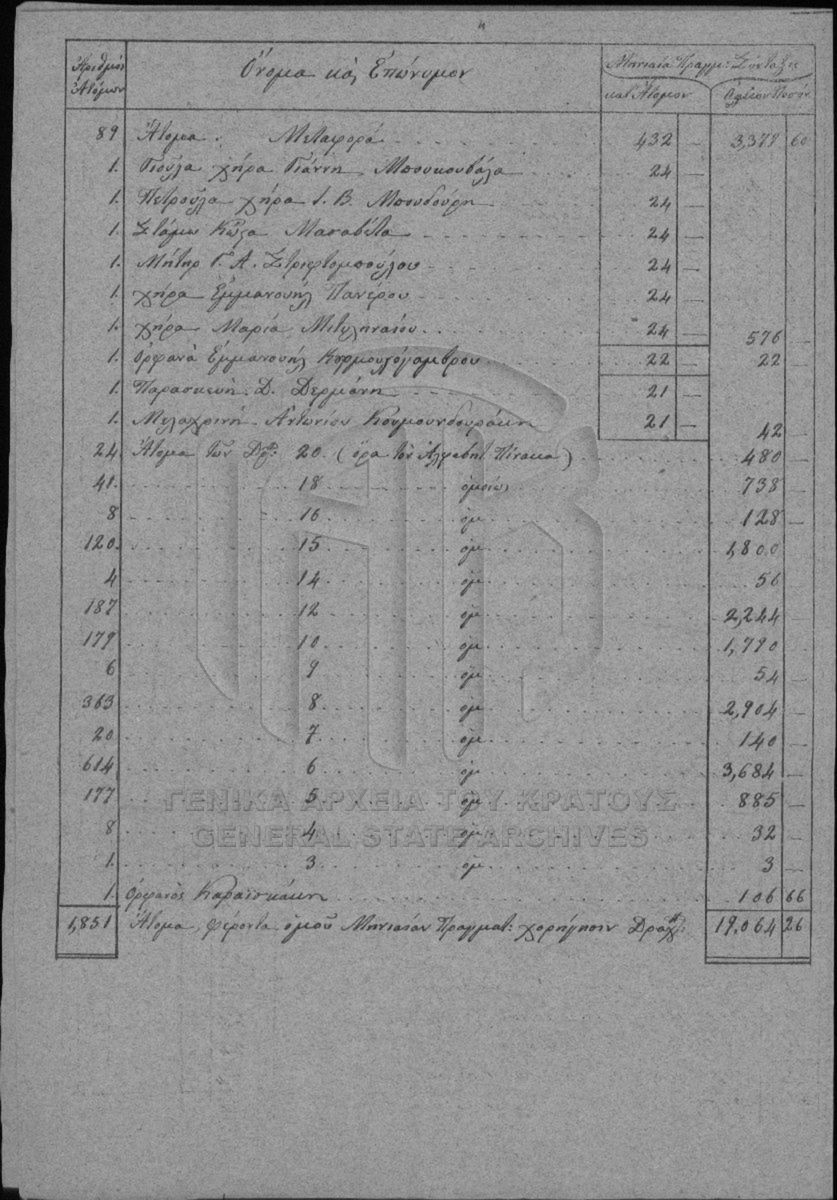 Ἀριθμὸς Ἀτόμων
Ὄνομα καὶ Ἐπώνυμον
Μηνιαία Πραγμ: Σύνταξις
κατ' Ἄτομον
Ὁλικὸν Ποσόν
89 Ἄτομα. Μεταφορά 432 — 3,378 60
1. Γιούλα χήρα Γιάννη Μπουκουβάλα 24 —
1. Πετρούλα χήρα Ι. Β. Μπουδούρη 24 —
1. Στάμω Κώζα 24 —
1. Μήτηρ Γ. Α. Στριφτομπούλου 24 —
1. χήρα Ἐμμανουὴλ Πανέρου 24 —
1. χήρα Μαρία Μιτυληναίου 24 — 576 —
1. Ὀρφανὰ Ἐμμανουὴλ 22 — 22 —
1. Παρασκευὴ Δ. Δερμάνη 21 —
1. Μελαχρινὴ Ἀντωνίου Κουμουνδουράκη 21 — 42 —
24 Ἄτομα τῶν Δρ: 20 (ὅρα τὸν Ἀλφαβητ Πίνακα) 480 —
41. 18 ὁμοίως 738 —
8 16 ὁμ 128 —
120. 15 ὁμ 1,800
4 14 ὁμ 56 —
187 12 ὁμ 2,244 —
179 10 ὁμ 1,790 —
6 9 ὁμ 54 —
363 8 ὁμ 2,904 —
20 7 ὁμ 140 —
614 6 ὁμ 3,684 —
177 5 ὁμ 885 —
8 4 ὁμ 32 —
1. 3 ὁμ 3 —
1. Ὀρφανὸς Καραϊσκάκη 106 66
1,851 Ἄτομα, φέροντα ὁμοῦ Μηνιαίαν Πραγματ: χορήγησιν Δραχ: 19,064 26
ΓΕΝΙΚΑ ΑΡΧΕΙΑ ΤΟΥ ΚΡΑΤΟΥΣ
GENERAL STATE ARCHIVES